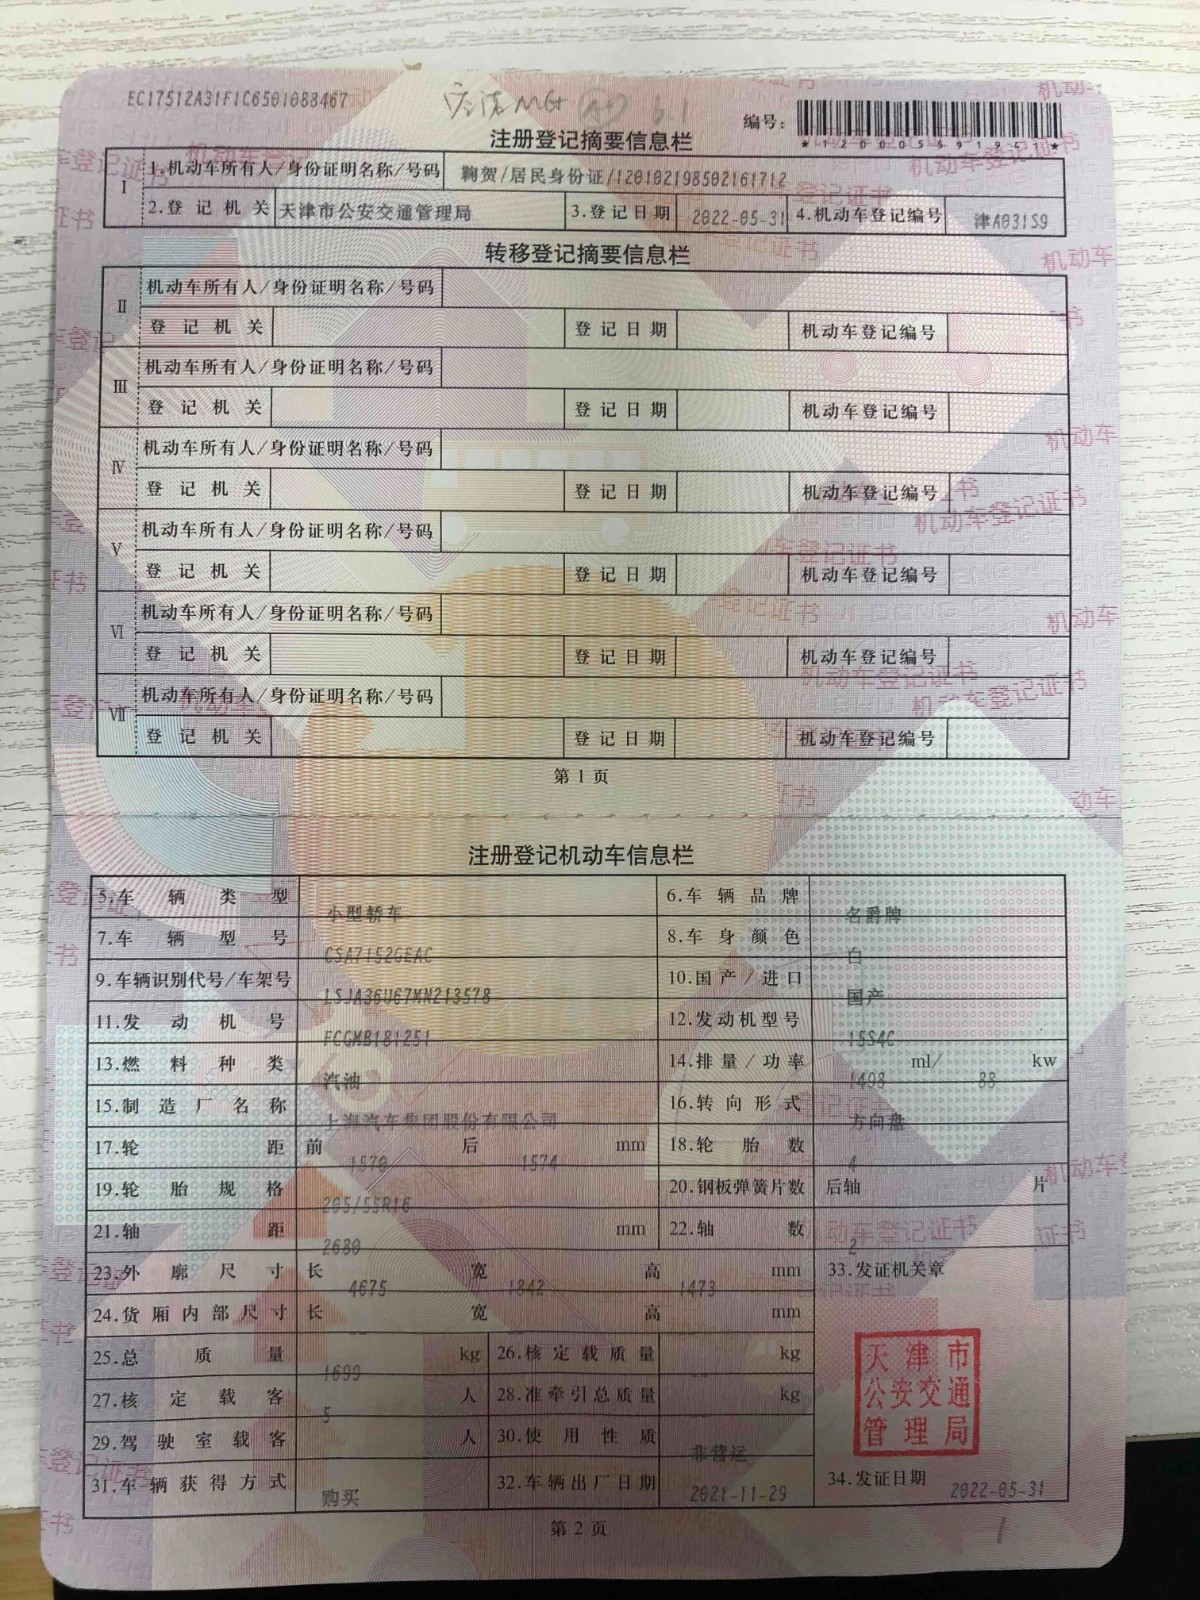 EC17512A31F1C6501088467
编号:
*120005591941*
注册登记摘要信息栏
Ⅰ
1.机动车所有人/身份证明名称/号码 鞠贺/居民身份证/120102198502161712
2.登记机关 天津市公安交通管理局 3.登记日期 2022-05-31 4.机动车登记编号 津A031S9
转移登记摘要信息栏
Ⅱ
机动车所有人/身份证明名称/号码
登记机关 登记日期 机动车登记编号
Ⅲ
机动车所有人/身份证明名称/号码
登记机关 登记日期 机动车登记编号
Ⅳ
机动车所有人/身份证明名称/号码
登记机关 登记日期 机动车登记编号
Ⅴ
机动车所有人/身份证明名称/号码
登记机关 登记日期 机动车登记编号
Ⅵ
机动车所有人/身份证明名称/号码
登记机关 登记日期 机动车登记编号
Ⅶ
机动车所有人/身份证明名称/号码
登记机关 登记日期 机动车登记编号
第1页
注册登记机动车信息栏
5.车辆类型 小型轿车 6.车辆品牌 名爵牌
7.车辆型号 CSA7152GEAC 8.车身颜色 白
9.车辆识别代号/车架号 LSJA36U67MN213578 10.国产/进口 国产
11.发动机号 FCGMB181251 12.发动机型号 15S4C
13.燃料种类 汽油 14.排量/功率 1498 ml/ 88 kw
15.制造厂名称 上海汽车集团股份有限公司 16.转向形式 方向盘
17.轮距 前 1570 后 1574 mm 18.轮胎数 4
19.轮胎规格 205/55R16 20.钢板弹簧片数 后轴 片
21.轴距 2680 mm 22.轴数 2
23.外廓尺寸 长 4675 宽 1842 高 1473 mm 33.发证机关章
24.货厢内部尺寸 长 宽 高 mm
25.总质量 1699 kg 26.核定载质量 kg
27.核定载客 5 人 28.准牵引总质量 kg
29.驾驶室载客 人 30.使用性质 非营运
31.车辆获得方式 购买 32.车辆出厂日期 2021-11-29 34.发证日期 2022-05-31
天津市
公安交通
管理局
第2页